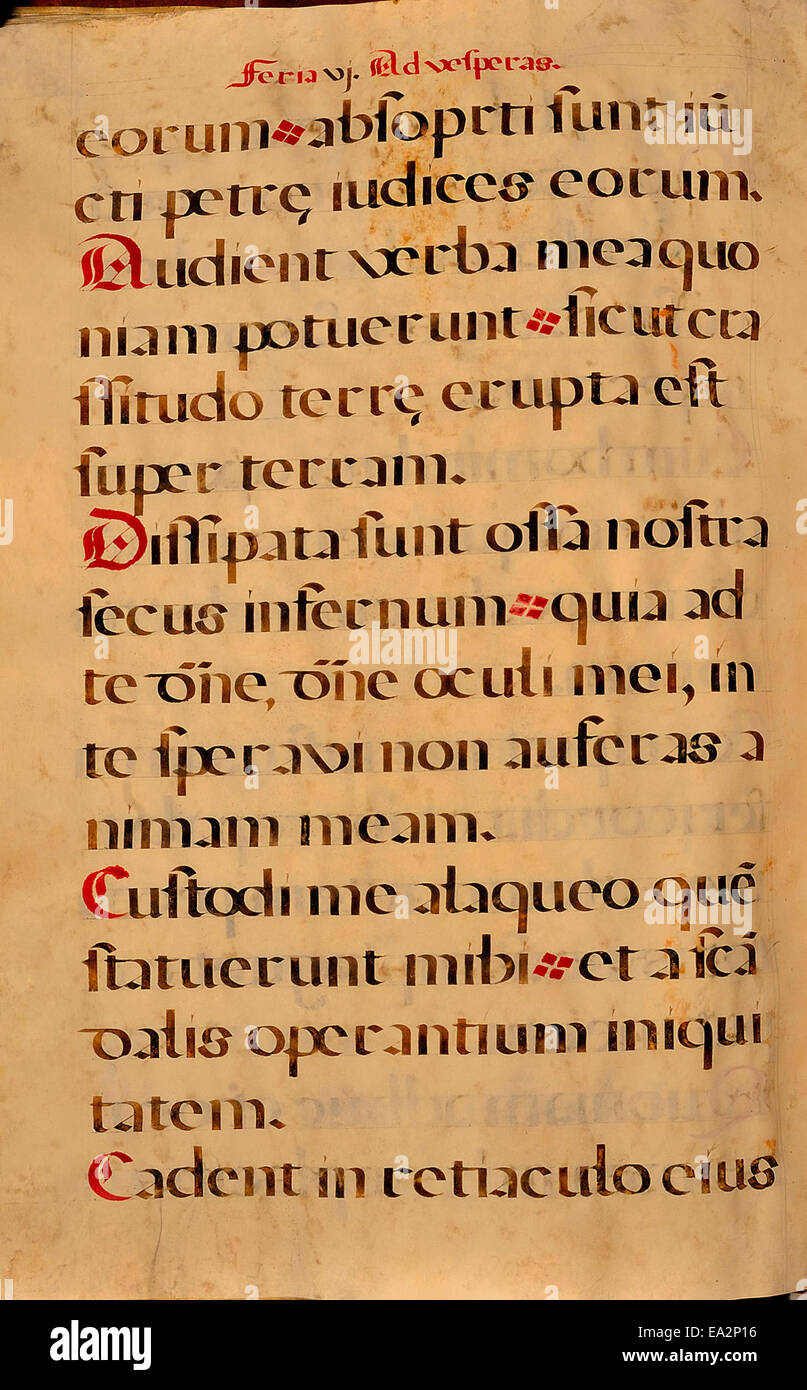 Feria vj. Ad veſperas.
eorum ❖ abſoprti ſunt iū
cti petrę iudices eorum.
Audient verba mea quo
niam potuerunt ❖ ſicut cra
ſſitudo terrę erupta eſt
ſuper terram.
Diſſipata ſunt oſſa noſtra
ſecus infernum ❖ quia ad
te dn̄e, dn̄e oculi mei, in
te ſperavi non auferas a
nimam meam.
Cuſtodi me a laqueo quē
ſtatuerunt mihi ❖ et a ſcā
dalis operantium iniqui
tatem.
Cadent in retiaculo eius
alamy
alamy stock photo
EA2P16
www.alamy.com